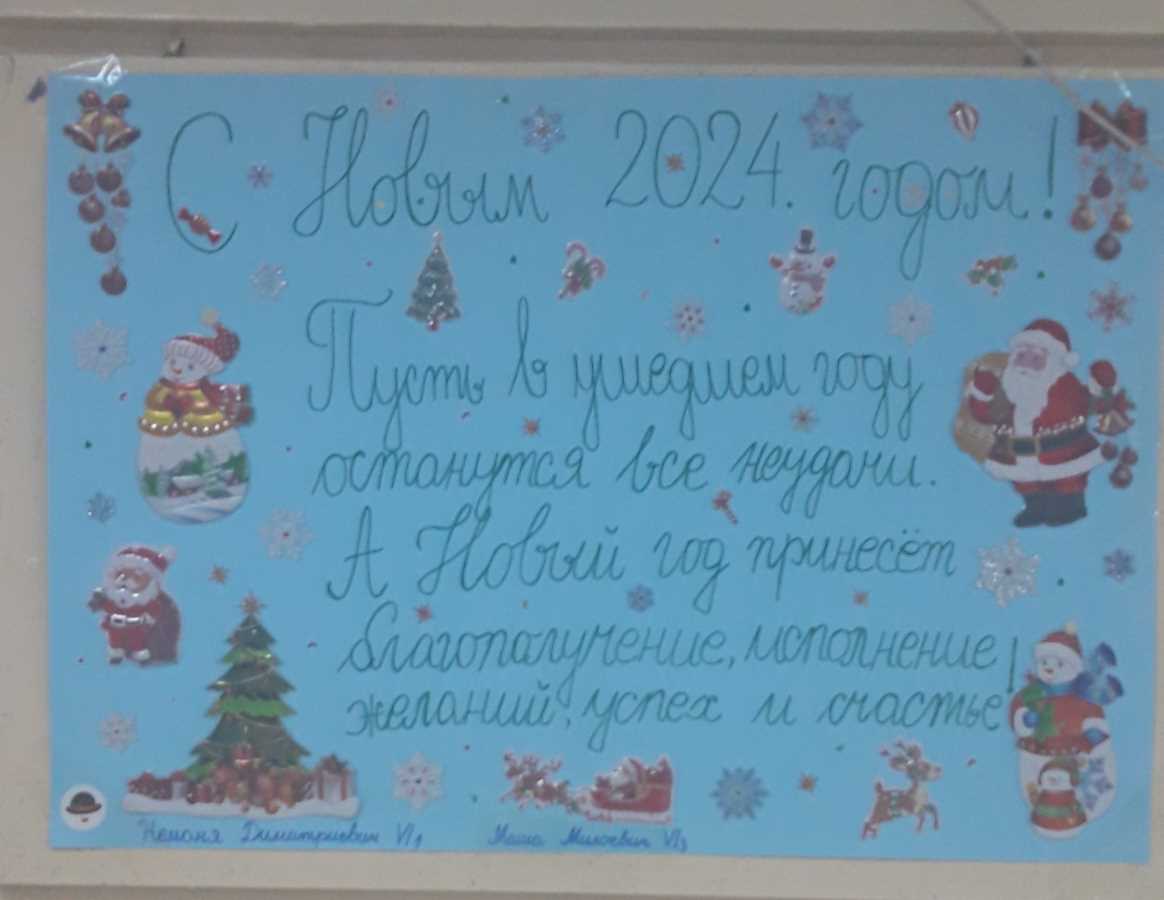 С Новым 2024. годом!
Пусть в ушедшем году
останутся все неудачи.
А Новый год принесёт
благополучение, исполнение
желаний, успех и счастье!
Немања Димитриевич VI1 Маша Милоевич VI3